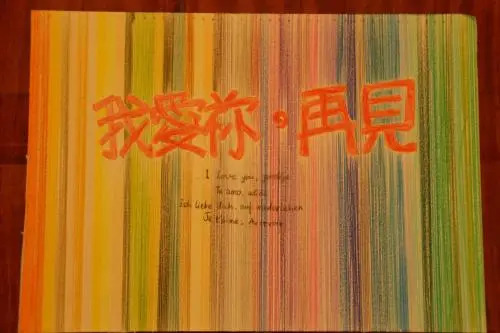 我愛祢,再見
I love you, goodbye
Te amo, adiós
Ich liebe dich, auf wiedersehen
Je t'aime, Au revoir